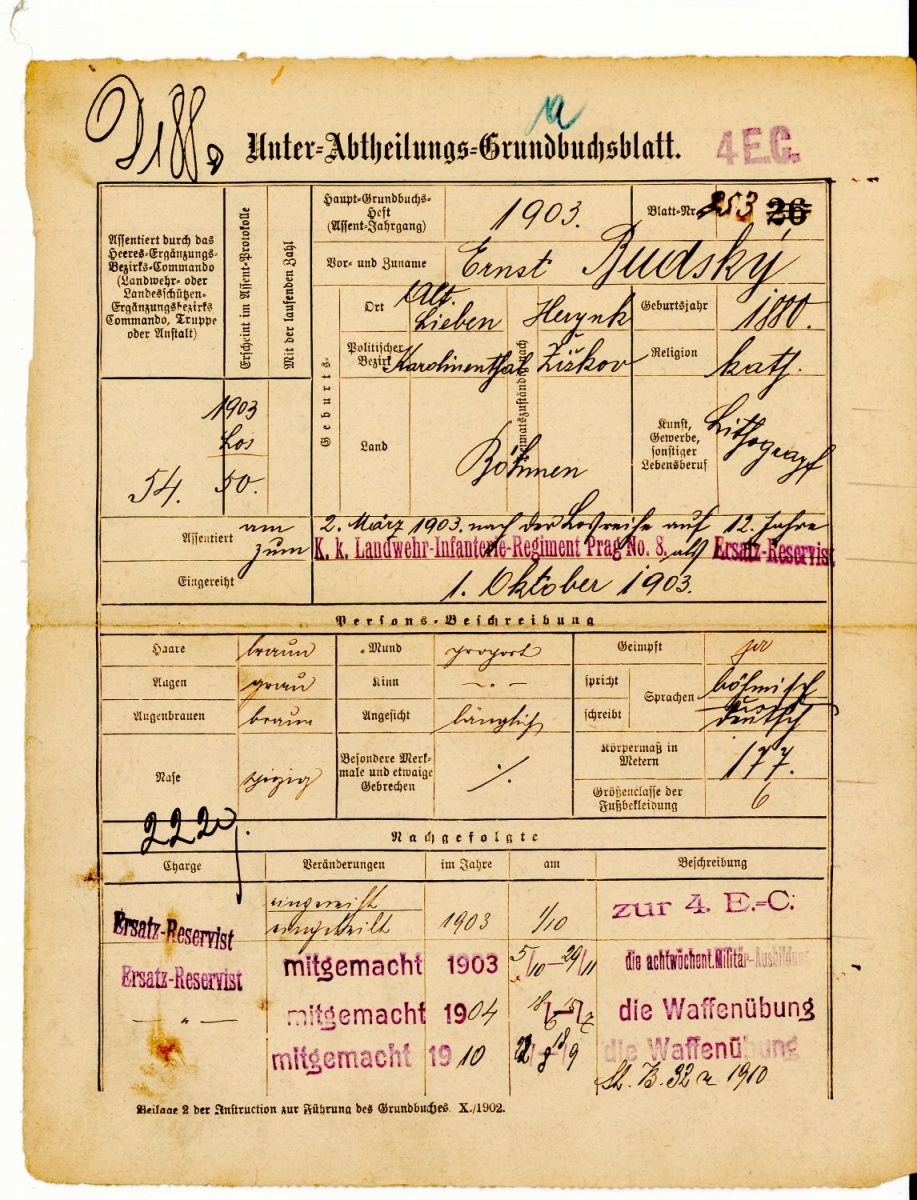 a
Unter-Abtheilungs-Grundbuchsblatt.
4 E.C.
Assentiert durch das
Heeres-Ergänzungs-
Bezirks-Commando
(Landwehr- oder
Landesschützen-
Ergänzungsbezirks
Commando, Truppe
oder Anstalt)
Erscheint im Assent-Protokolle
Mit der laufenden Zahl
Haupt-Grundbuchs-
Heft
(Assent-Jahrgang)
1903.
Blatt-Nr. 253 26
Vor- und Zuname
Ernst Rudský
Geburts-
Ort
Alt.
Lieben
Heimatszuständig nach
Herynk
Geburtsjahr
1880.
Politischer
Bezirk
Karolinenthal
Žižkov
Religion
kath.
Land
Böhmen
Kunst,
Gewerbe,
sonstiger
Lebensberuf
Lithograf
1903
Los
54. 50.
Assentiert am
zum
2. März 1903. nach der Losreihe auf 12. Jahre
K. k. Landwehr-Infanterie-Regiment Prag No. 8. als Ersatz-Reservist
Eingereiht
1. Oktober 1903.
Persons-Beschreibung
Haare braun Mund proport Geimpft ja
Augen grau Kinn - „ - spricht Sprachen böhmisch
Augenbrauen braun Angesicht länglich schreibt deutsch
Nase spizig
Besondere Merk-
male und etwaige
Gebrechen
./.
Körpermaß in
Metern
177.
Größenclasse der
Fußbekleidung
6
Nachgefolgte
Charge Veränderungen im Jahre am Beschreibung
eingereiht
Ersatz-Reservist eingeteilt 1903 1/10 zur 4. E.-C.
Ersatz-Reservist mitgemacht 1903 5/10-29/11 die achtwöchent. Militär-Ausbildung
— „ — mitgemacht 1904 die Waffenübung
mitgemacht 1910 die Waffenübung
1910
Beilage 2 der Instruction zur Führung des Grundbuches. X./1902.